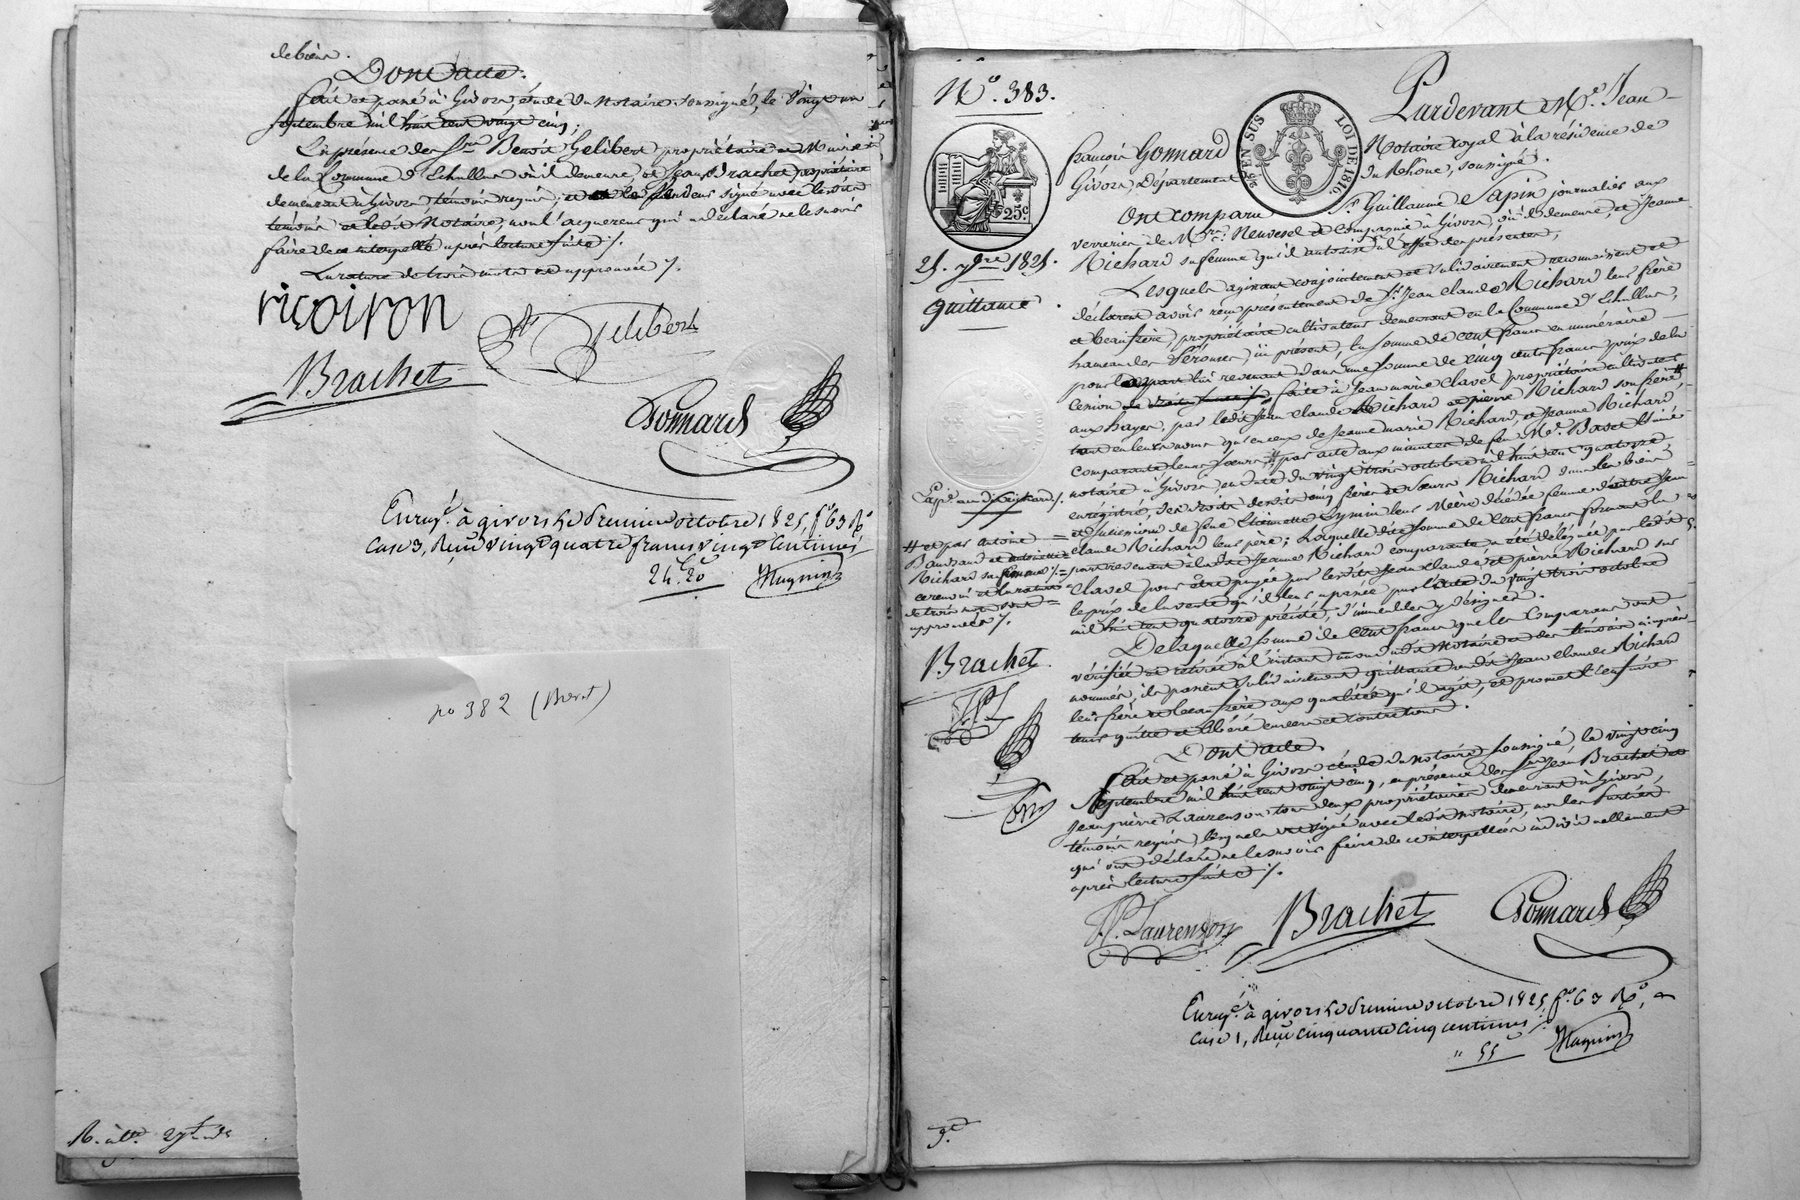 de biens.
Dont acte.
Fait et passé à Givors, étude du Notaire soussigné, le vingt un
septembre mil huit cent vingt cinq;
En présence des Srs Benoît Gelibert propriétaire et Maire
de la Commune d'Echallas où il demeure, et Jean Brachet propriétaire
demeurant à Givors témoins requis; et le Vendeur signé avec lesdits
témoins et ledit Notaire, non l'acquereur qui a déclaré ne le savoir
faire de ce interpellé après lecture faite ./.
La rature de trois mots est approuvée ./.
riçoiron
Gelibert
Brachet
Gonnard
Enregé. à givors le premier octobre 1825, fo. 63 Ro.
Case 3, Reçu vingt quatre francs vingt Centimes
24f. 20c
Magnin
no 382
No. 383.
25c
25 EN SUS
LOI DE 1816
25. 7bre 1825.
Quittance.
Pardevant Me. Jean
François Gonnard Notaire royal à la résidence de
Givors, Département du Rhône, soussigné.
Ont comparu Sr. Guillaume Sapin journalier aux
verreries de Mrs. Neuvesel et Compagnie à Givors, où il demeure, et Jeanne
Richard sa femme qu'il autorise à l'effet des présentes,
Lesquels agissant conjointement et solidairement reconnaissent et
déclarent avoir reçu présentement de Sr. Jean Claude Richard leur frère
et beaufrère, propriétaire cultivateur demeurant en la Commune d'Echallas,
hameau des ici présent, la somme de cent francs en numéraire
pour la part lui revenant dans une somme de cinq cents francs prix de la
cession faite à Jean marie Clavel propriétaire cultivateur
aux hayes, par ledit Jean Claude Richard et pierre Richard son frère #
tant en leurs noms qu'en ceux de Jeanne marie Richard, et Jeanne Richard
comparante leurs sœurs, # par acte aux minutes de feu Me. Basset
notaire à Givors, en date du vingt trois octobre mil huit cent quatorze,
enregistré, des droits desdits cinq frères et sœurs Richard dans les biens
et succession de feue Etiennette leur Mère décédée femme dudit Jean
claude Richard leur père; Laquelle dite somme de Cent francs formant la
part revenant à ladite Jeanne Richard comparante a été déléguée par ledit Sr.
Clavel pour être payée par lesdits Jean Claude et pierre Richard sur
le prix de la vente qu'il leur a passée par l'acte du vingt trois octobre
mil huit cent quatorze précité, d'immeubles y désignés.
De laquelle somme de Cent francs que les Comparans ont
vérifiée et retirée à l'instant au vu du Notaire et des témoins ci après
nommés, ils passent solidairement quittance audit Jean Claude Richard
leur frère et beaufrère aux qualités qu'il agit, et promettent l'en faire
tenir quitte et libéré envers et contre tous.
Dont acte.
Fait et passé à Givors étude du Notaire soussigné, le vingt cinq
septembre mil huit cent vingt cinq, en présence des Srs Jean Brachet et
Jean pierre Laurenson tous deux propriétaires demeurant à Givors,
témoins requis, lesquels ont signé avec ledit Notaire, non les parties
qui ont déclaré ne le savoir faire de ce interpellées individuellement
après lecture faite ./.
# et par Antoine
Richard sa femme ./.
ce renvoi et la rature
de trois mots sont
approuvés ./.
Brachet
J.P. Laurenson
Brachet
Gonnard
Enregé. à givors le premier octobre 1825, fo. 63 Ro.,
Case 1, Reçu cinquante cinq centimes
" 55c
Magnin